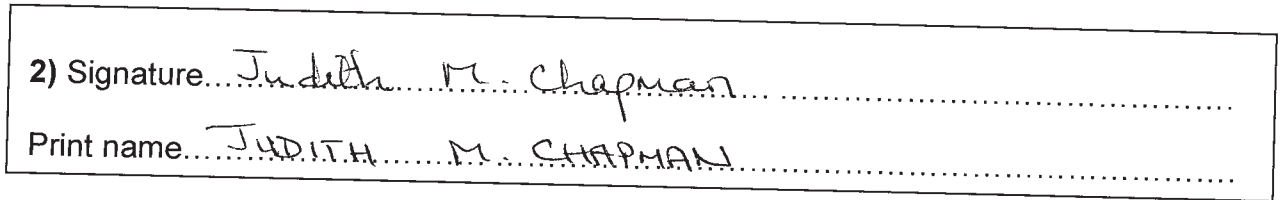 2) Signature... Judith M. Chapman ...
Print name... JUDITH M. CHAPMAN ...